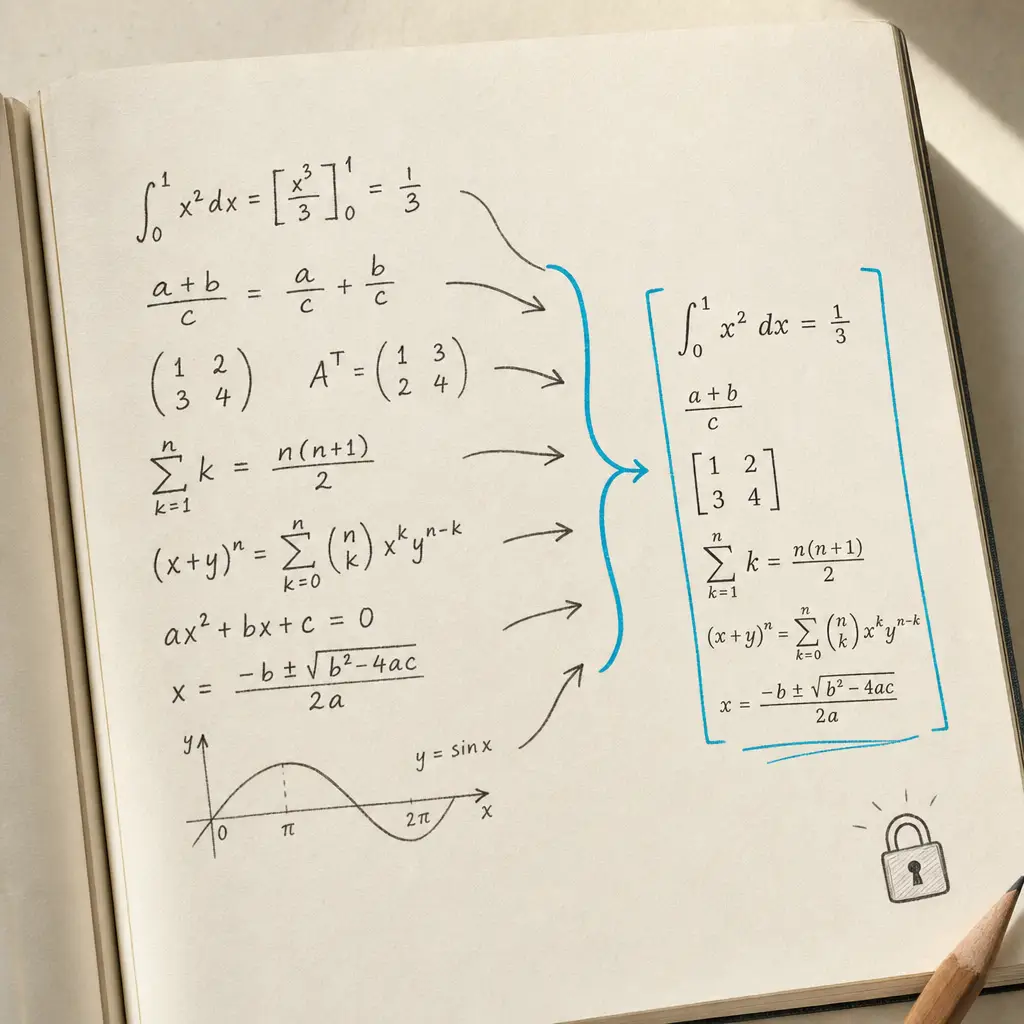 ∫₀¹ x² dx = [x³/3]₀¹ = 1/3
(a + b)/c = a/c + b/c
(1 2; 3 4) Aᵀ = (1 3; 2 4)
∑ₖ₌₁ⁿ k = n(n+1)/2
(x+y)ⁿ = ∑ₖ₌₀ⁿ (n k) xᵏyⁿ⁻ᵏ
ax² + bx + c = 0
x = (-b ± √(b² - 4ac))/2a
y
y = sin x
0 π 2π x
∫₀¹ x² dx = 1/3
(a + b)/c
[1 2; 3 4]
∑ₖ₌₁ⁿ k = n(n+1)/2
(x+y)ⁿ = ∑ₖ₌₀ⁿ (n k) xᵏyⁿ⁻ᵏ
x = (-b ± √(b² - 4ac))/2a